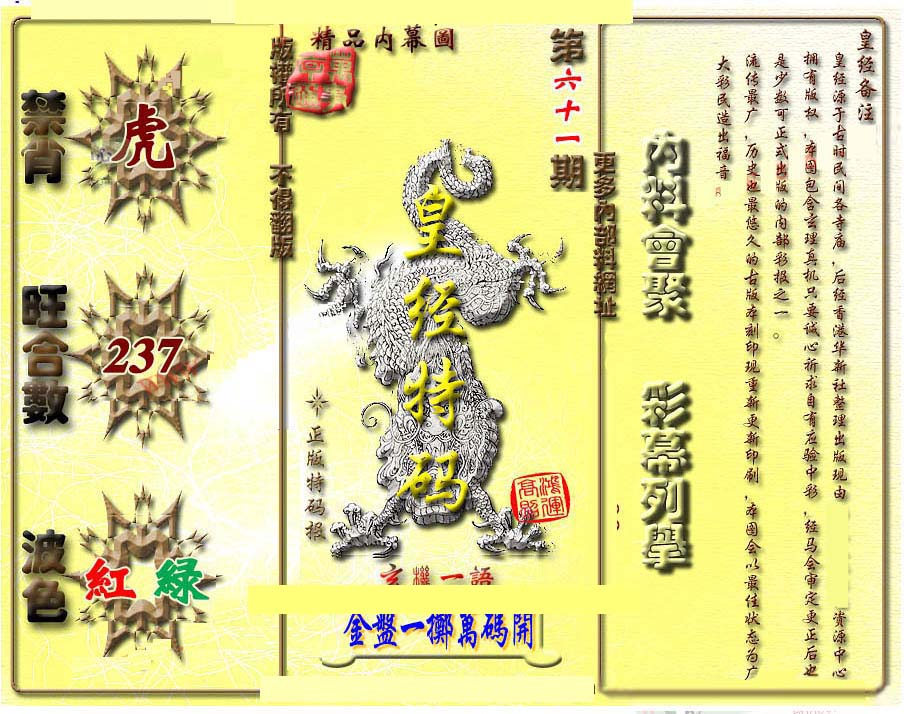 精品内幕圖
版權所有 不得翻版
第六十一期
更多內部料網址
禁肖
虎
旺合數
237
波色
紅 綠
皇经特码
正版特码报
鴻運
高照
玄機一語
金盤一擲萬碼開
內料會聚 彩幕列舉
皇经备注
皇经源于古时民间各寺庙,后经香港华新社整理出版现由 资源中心
拥有版权,本图包含玄理真机只要诚心祈求自有应验中彩,经马会审定更正后也
是少数可正式出版的内部彩报之一。
流传最广,历史也最悠久的古版本刻印现重新更新印刷,本图会以最佳状态为广
大彩民造出福音